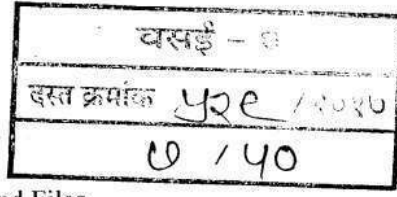 वसई –
दस्त क्रमांक ५२९ / २०१७
७ / ५०
nd Files